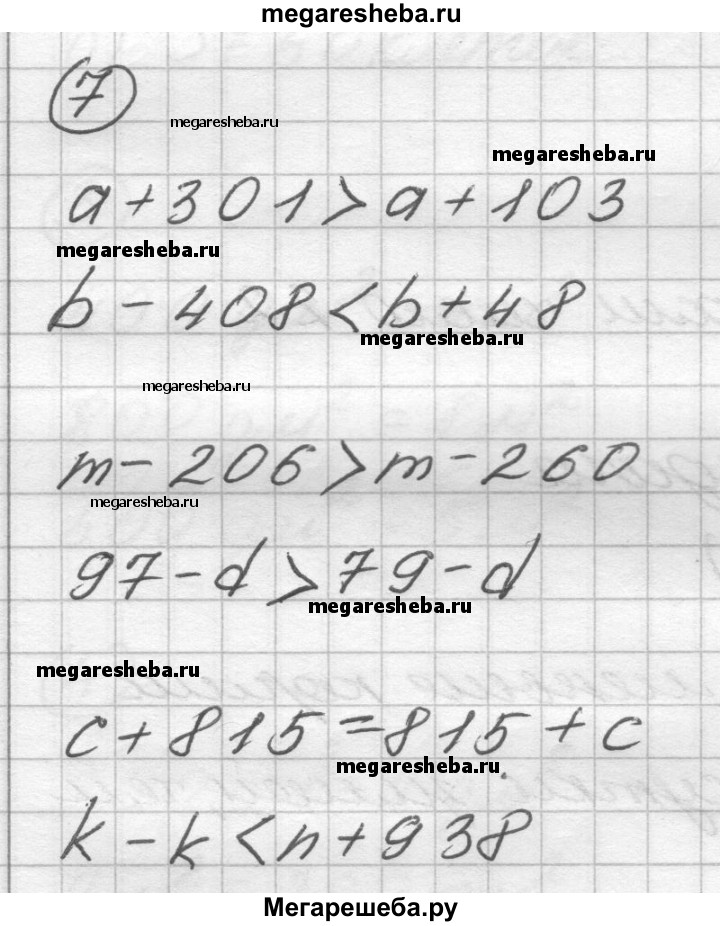 megaresheba.ru
7
megaresheba.ru
megaresheba.ru
a+301>a+103
megaresheba.ru
b-408<b+48
megaresheba.ru
megaresheba.ru
m-206>m-260
megaresheba.ru
97-d>79-d
megaresheba.ru
megaresheba.ru
c+815=815+c
megaresheba.ru
k-k<n+938
Мегарешеба.ру